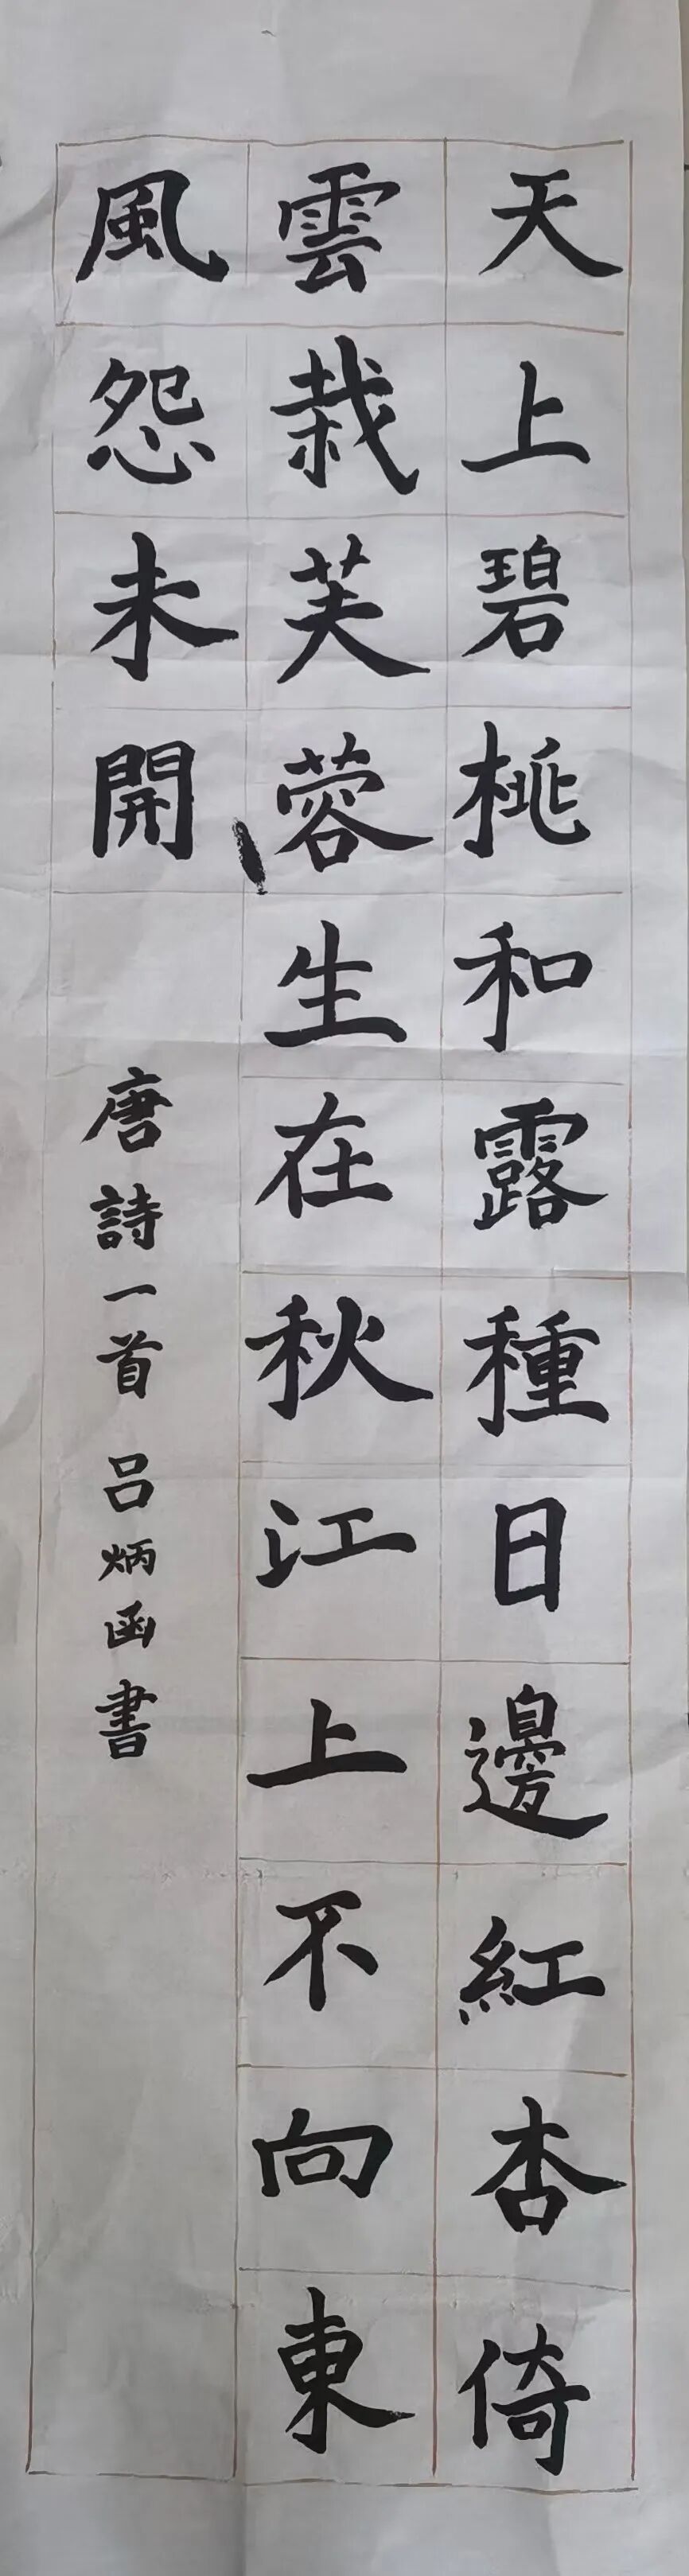 天上碧桃和露種日邊紅杏倚
雲栽芙蓉生在秋江上不向東
風怨未開
唐詩一首 呂炳函書